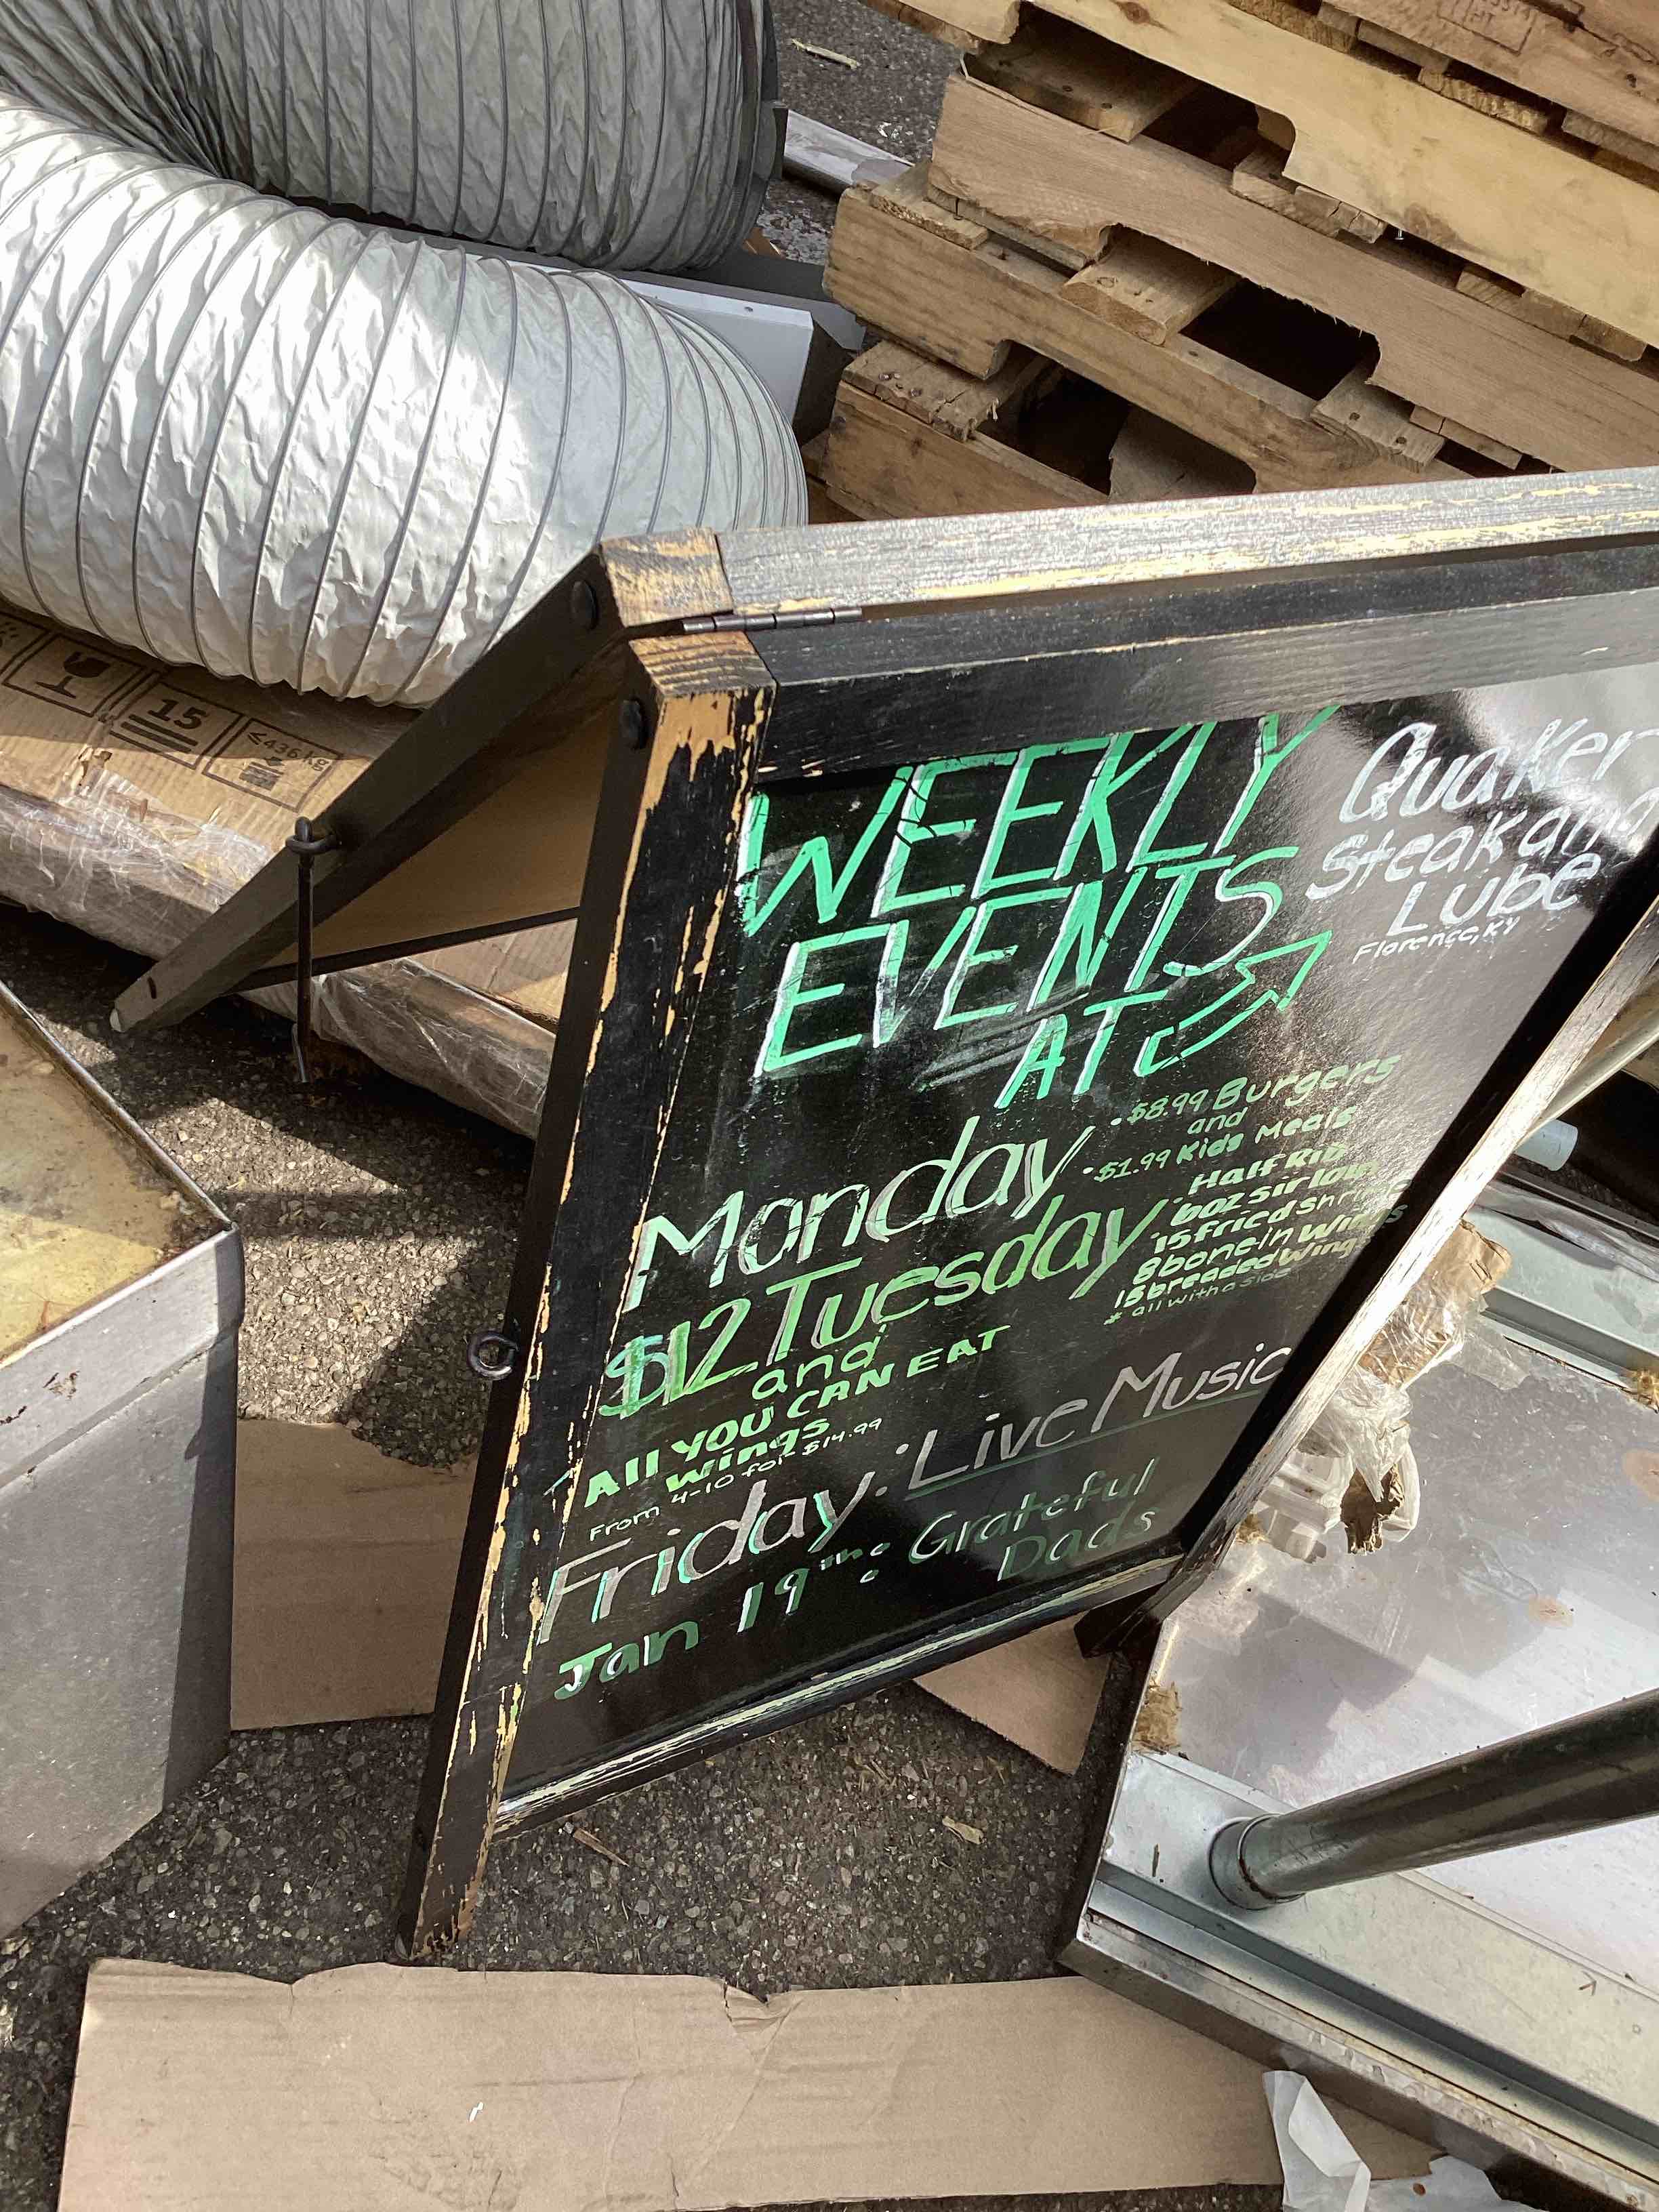 WEEKLY
EVENTS
AT
Quaker
Steak and
Lube
Florence, KY
Monday
• $8.99 Burgers
and
• $1.99 Kids Meals
$12 Tuesday
• Half Rib
6oz Sirloin
15 fried Shrimp
8 bone in Wings
15 breaded Wings
* all with a side
and
All YOU CAN EAT
wings
From 4-10 for $14.99
Friday: • Live Music
Jan 19th: Grateful
Dads
15
≤436kg